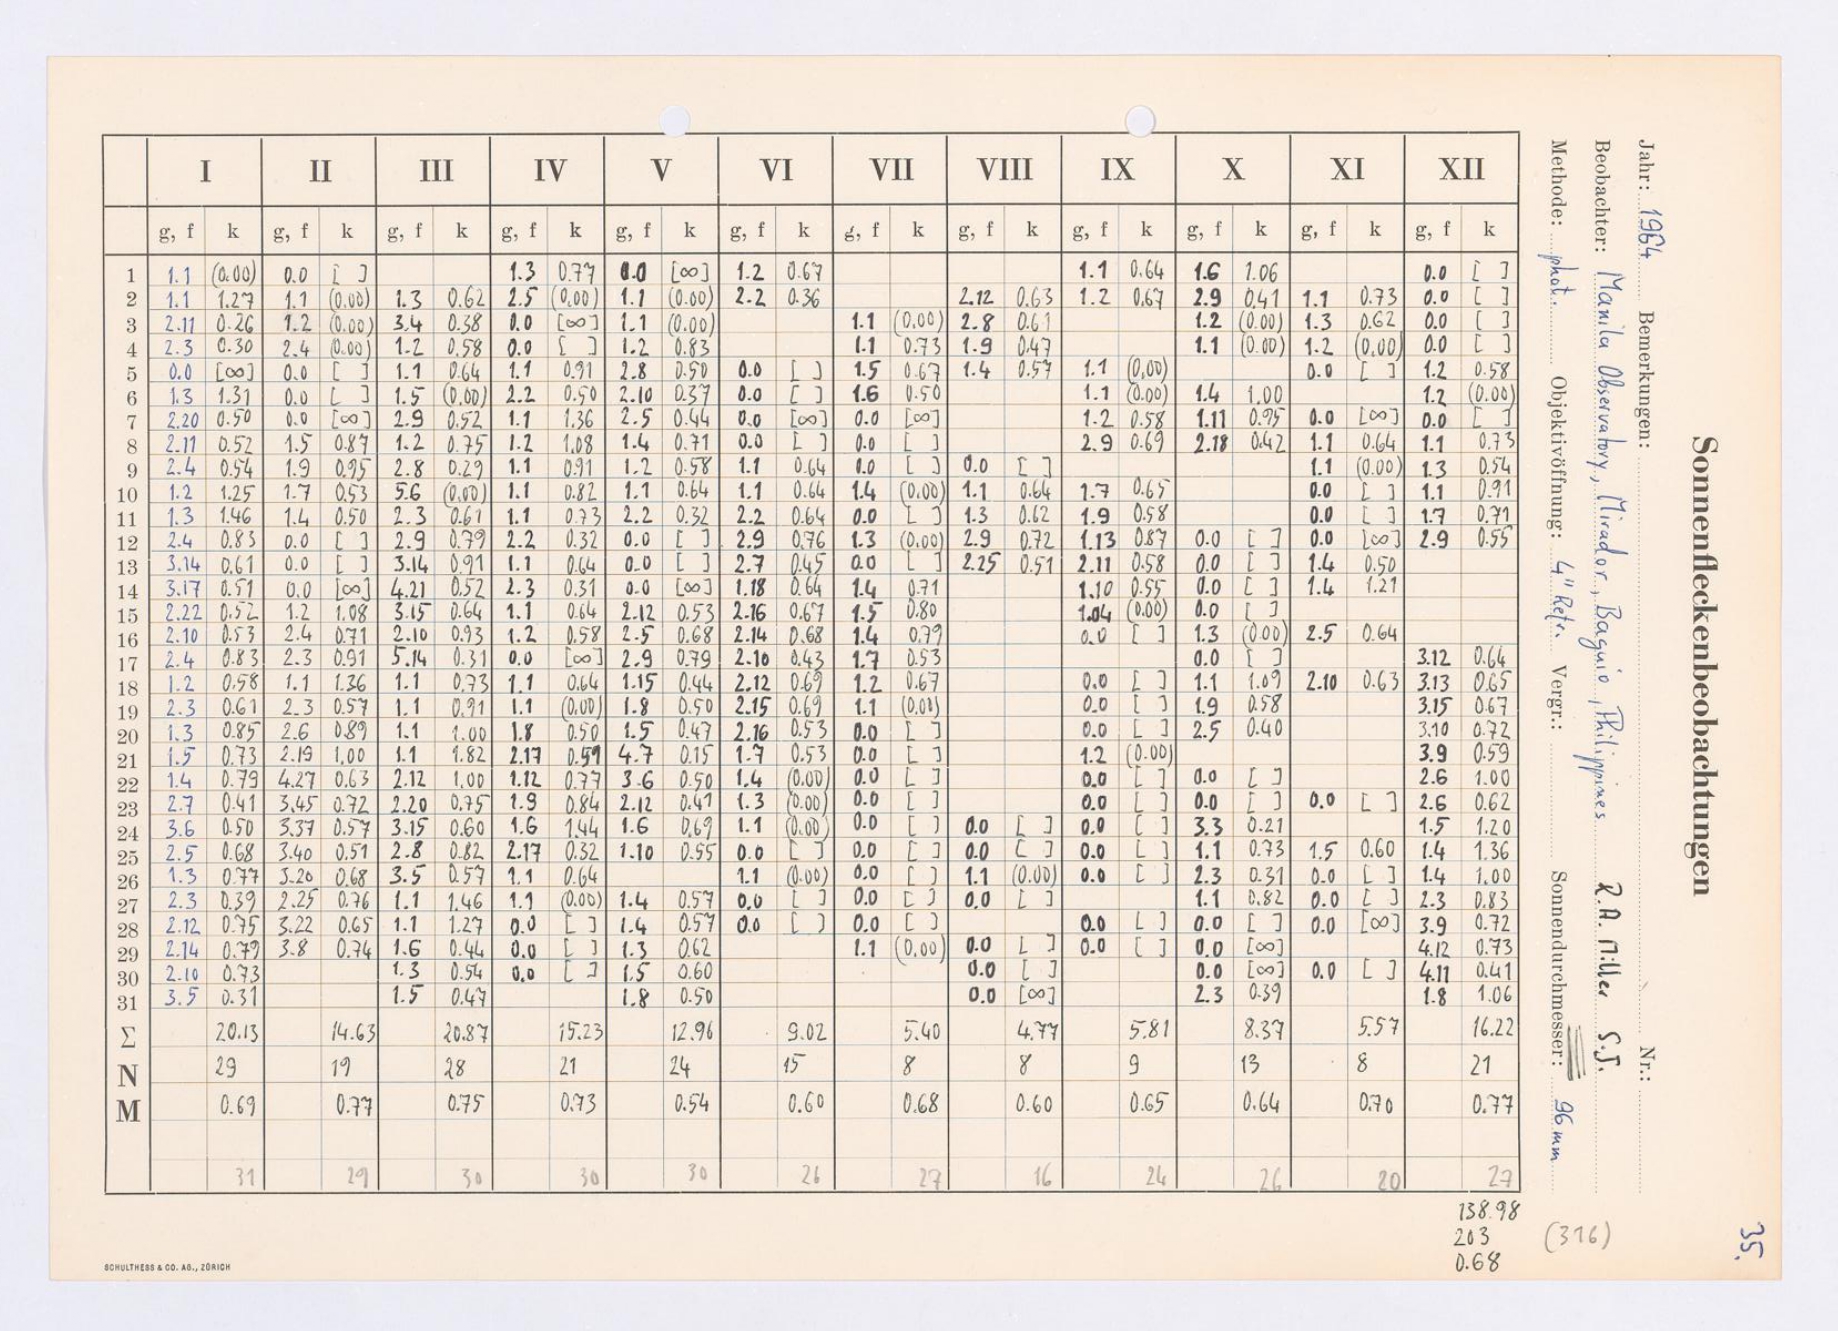 Sonnenfleckenbeobachtungen
Jahr: 1964 Bemerkungen: Nr.:
Beobachter: Manila Observatory, Mirador, Baguio, Philippines R.A. Miller S.J.
Methode: phot. Objektivöffnung: 4" Refr. Vergr.: Sonnendurchmesser: 96 mm
35.
I II III IV V VI VII VIII IX X XI XII
g, f k g, f k g, f k g, f k g, f k g, f k g, f k g, f k g, f k g, f k g, f k g, f k
1 1.1 (0.00) 0.0 [ ] 1.3 0.77 0.0 [∞] 1.2 0.67 1.1 0.64 1.6 1.06 0.0 [ ]
2 1.1 1.27 1.1 (0.00) 1.3 0.62 2.5 (0.00) 1.1 (0.00) 2.2 0.36 2.12 0.63 1.2 0.67 2.9 0.41 1.1 0.73 0.0 [ ]
3 2.11 0.26 1.2 (0.00) 3.4 0.38 0.0 [∞] 1.1 (0.00) 1.1 (0.00) 2.8 0.61 1.2 (0.00) 1.3 0.62 0.0 [ ]
4 2.3 0.30 2.4 (0.00) 1.2 0.58 0.0 [ ] 1.2 0.83 1.1 0.73 1.9 0.47 1.1 (0.00) 1.2 (0.00) 0.0 [ ]
5 0.0 [∞] 0.0 [ ] 1.1 0.64 1.1 0.91 2.8 0.50 0.0 [ ] 1.5 0.67 1.4 0.57 1.1 (0.00) 0.0 [ ] 1.2 0.58
6 1.3 1.31 0.0 [ ] 1.5 (0.00) 2.2 0.50 2.10 0.37 0.0 [ ] 1.6 0.50 1.1 (0.00) 1.4 1.00 1.2 (0.00)
7 2.20 0.50 0.0 [∞] 2.9 0.52 1.1 1.36 2.5 0.44 0.0 [∞] 0.0 [∞] 1.2 0.58 1.11 0.95 0.0 [∞] 0.0 [ ]
8 2.11 0.52 1.5 0.87 1.2 0.75 1.2 1.08 1.4 0.71 0.0 [ ] 0.0 [ ] 2.9 0.69 2.18 0.42 1.1 0.64 1.1 0.73
9 2.4 0.54 1.9 0.95 2.8 0.29 1.1 0.91 1.2 0.58 1.1 0.64 0.0 [ ] 0.0 [ ] 1.1 (0.00) 1.3 0.54
10 1.2 1.25 1.7 0.53 5.6 (0.00) 1.1 0.82 1.1 0.64 1.1 0.64 1.4 (0.00) 1.1 0.64 1.7 0.65 0.0 [ ] 1.1 0.91
11 1.3 1.46 1.4 0.50 2.3 0.61 1.1 0.73 2.2 0.32 2.2 0.64 0.0 [ ] 1.3 0.62 1.9 0.58 0.0 [ ] 1.7 0.71
12 2.4 0.83 0.0 [ ] 2.9 0.79 2.2 0.32 0.0 [ ] 2.9 0.76 1.3 (0.00) 2.9 0.72 1.13 0.87 0.0 [ ] 0.0 [∞] 2.9 0.55
13 3.14 0.61 0.0 [ ] 3.14 0.91 1.1 0.64 0.0 [ ] 2.7 0.45 0.0 [ ] 2.25 0.51 2.11 0.58 0.0 [ ] 1.4 0.50
14 3.17 0.51 0.0 [∞] 4.21 0.52 2.3 0.31 0.0 [∞] 1.18 0.64 1.4 0.71 1.10 0.55 0.0 [ ] 1.4 1.21
15 2.22 0.52 1.2 1.08 3.15 0.64 1.1 0.64 2.12 0.53 2.16 0.67 1.5 0.80 (0.00) 0.0 [ ]
16 2.10 0.53 2.4 0.71 2.10 0.93 1.2 0.58 2.5 0.68 2.14 0.68 1.4 0.79 0.0 [ ] 1.3 (0.00) 2.5 0.64
17 2.4 0.83 2.3 0.91 5.14 0.31 0.0 [∞] 2.9 0.79 2.10 0.43 1.7 0.53 0.0 [ ] 3.12 0.64
18 1.2 0.58 1.1 1.36 1.1 0.73 1.1 0.64 1.15 0.44 2.12 0.69 1.2 0.67 0.0 [ ] 1.1 1.09 2.10 0.63 3.13 0.65
19 2.3 0.61 2.3 0.57 1.1 0.91 1.1 (0.00) 1.8 0.50 2.15 0.69 1.1 (0.00) 0.0 [ ] 1.9 0.58 3.15 0.67
20 1.3 0.85 2.6 0.89 1.1 1.00 1.8 0.50 1.5 0.47 2.16 0.53 0.0 [ ] 0.0 [ ] 2.5 0.40 3.10 0.72
21 1.5 0.73 2.19 1.00 1.1 1.82 2.17 0.59 4.7 0.15 1.7 0.53 0.0 [ ] 1.2 (0.00) 3.9 0.59
22 1.4 0.79 4.27 0.63 2.12 1.00 1.12 0.77 3.6 0.50 1.4 (0.00) 0.0 [ ] 0.0 [ ] 0.0 [ ] 2.6 1.00
23 2.7 0.41 3.45 0.72 2.20 0.75 1.9 0.84 2.12 0.41 1.3 (0.00) 0.0 [ ] 0.0 [ ] 0.0 [ ] 0.0 [ ] 2.6 0.62
24 3.6 0.50 3.37 0.57 3.15 0.60 1.6 1.44 1.6 0.69 1.1 (0.00) 0.0 [ ] 0.0 [ ] 0.0 [ ] 3.3 0.21 1.5 1.20
25 2.5 0.68 3.40 0.51 2.8 0.82 2.17 0.32 1.10 0.55 0.0 [ ] 0.0 [ ] 0.0 [ ] 0.0 [ ] 1.1 0.73 1.5 0.60 1.4 1.36
26 1.3 0.77 3.20 0.68 3.5 0.57 1.1 0.64 1.1 (0.00) 0.0 [ ] 1.1 (0.00) 0.0 [ ] 2.3 0.31 0.0 [ ] 1.4 1.00
27 2.3 0.39 2.25 0.76 1.1 1.46 1.1 (0.00) 1.4 0.57 0.0 [ ] 0.0 [ ] 0.0 [ ] 1.1 0.82 0.0 [ ] 2.3 0.83
28 2.12 0.75 3.22 0.65 1.1 1.27 0.0 [ ] 1.4 0.57 0.0 [ ] 0.0 [ ] 0.0 [ ] 0.0 [ ] 0.0 [∞] 3.9 0.72
29 2.14 0.79 3.8 0.74 1.6 0.44 0.0 [ ] 1.3 0.62 1.1 (0.00) 0.0 [ ] 0.0 [ ] 0.0 [∞] 4.12 0.73
30 2.10 0.73 1.3 0.54 0.0 [ ] 1.5 0.60 0.0 [ ] 0.0 [∞] 0.0 [ ] 4.11 0.41
31 3.5 0.31 1.5 0.47 1.8 0.50 0.0 [∞] 2.3 0.39 1.8 1.06
Σ 20.13 14.63 20.87 15.23 12.96 9.02 5.40 4.77 5.81 8.37 5.57 16.22
N 29 19 28 21 24 15 8 8 9 13 8 21
M 0.69 0.77 0.75 0.73 0.54 0.60 0.68 0.60 0.65 0.64 0.70 0.77
31 29 30 30 30 26 27 16 24 26 20 27
138.98
203 (316)
0.68
SCHULTHESS & CO. AG., ZÜRICH